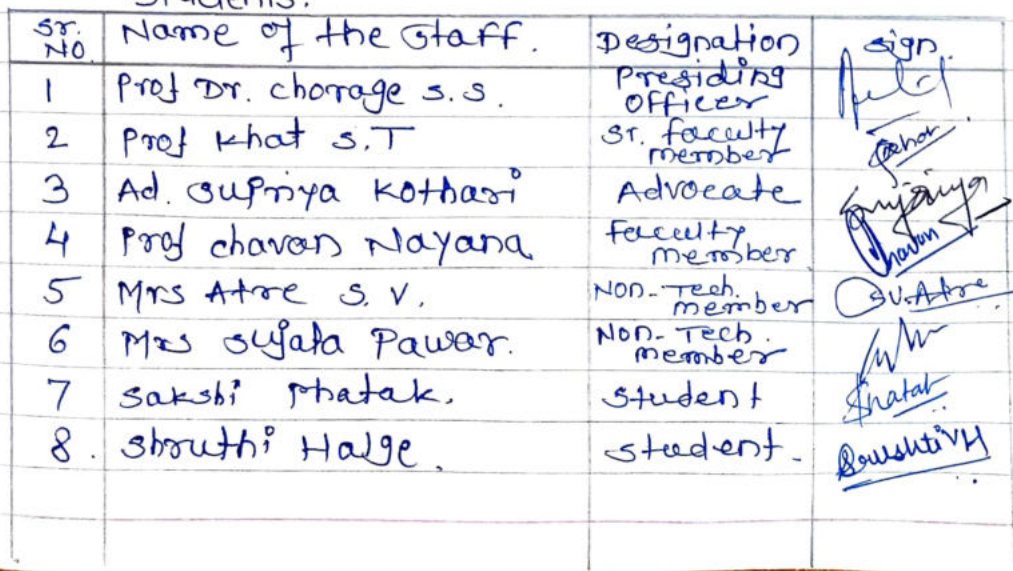 Students.
Sr. NO. Name of the Staff. Designation sign.
1 Prof Dr. Chorage S.S. Presiding Officer
2 Prof Khat S.T Sr. faculty member
3 Ad. Supriya Kothari Advocate
4 Prof Chavan Nayana faculty member Chavan
5 Mrs Atre S.V. Non-Tech. member S.V.Atre
6 Mrs Sujata Pawar. Non-Tech. member
7 Sakshi Phatak. Student
8. Shruthi Halge. Student.